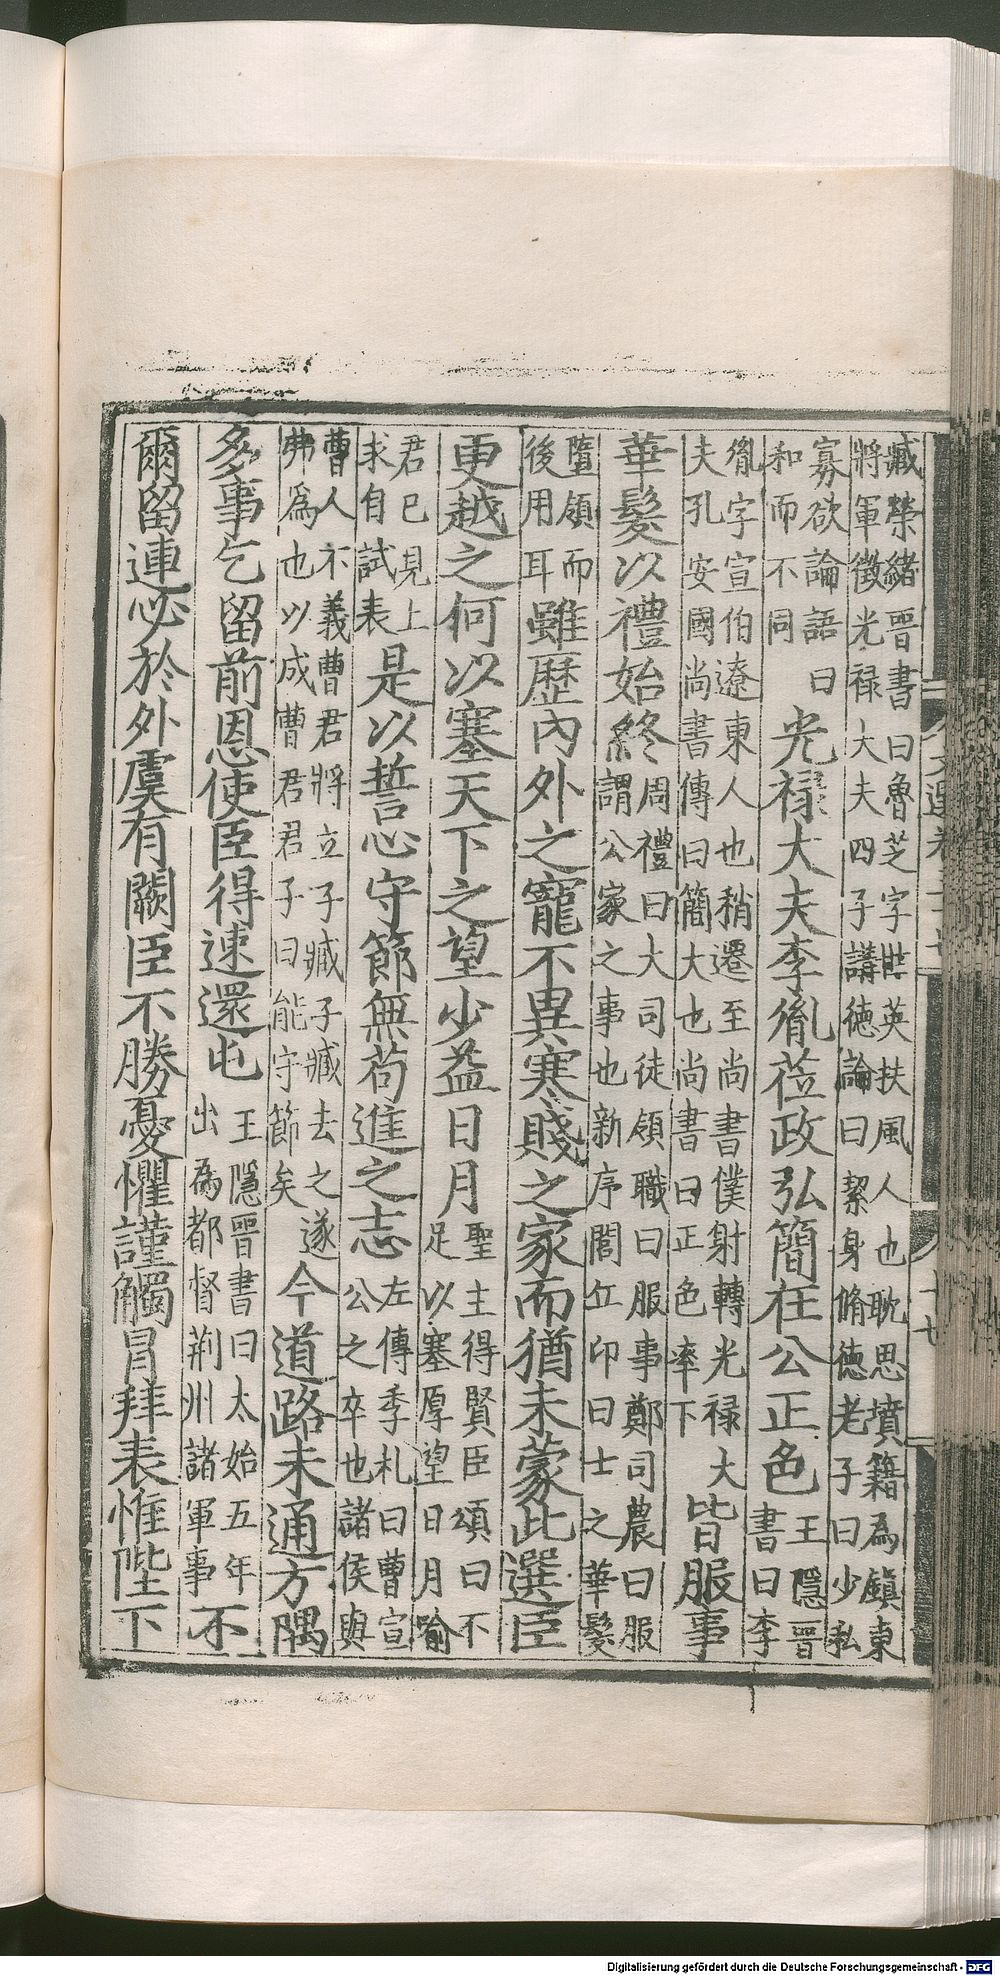 臧榮緒晉書曰魯芝字世英扶風人也耽思墳籍為鎮東
將軍徵光祿大夫四子講德論曰絜身脩德老子曰少私
寡欲論語曰
和而不同
光祿大夫李胤莅政弘簡在公正色
王隱晉
書曰李
胤字宣伯遼東人也稍遷至尚書僕射轉光祿大
夫孔安國尚書傳曰簡大也尚書曰正色率下
皆服事
華髮以禮始終
周禮曰大司徒領職曰服事鄭司農曰服
謂公家之事也新序閭丘卬曰士之華髮
墮領而
後用耳
雖歷內外之寵不異寒賤之家而猶未蒙此選臣
更越之何以塞天下之望少益日月
聖主得賢臣頌曰不
足以塞厚望日月喻
君已見上
求自試表
是以誓心守節無苟進之志
左傳季札曰曹宣
公之卒也諸侯與
曹人不義曹君將立子臧子臧去之遂
弗為也以成曹君君子曰能守節矣
今道路未通方隅
多事乞留前恩使臣得速還屯
王隱晉書曰太始五年
出為都督荊州諸軍事
不
爾留連必於外虞有闕臣不勝憂懼謹觸冒拜表惟陛下
Digitalisierung gefördert durch die Deutsche Forschungsgemeinschaft - DFG